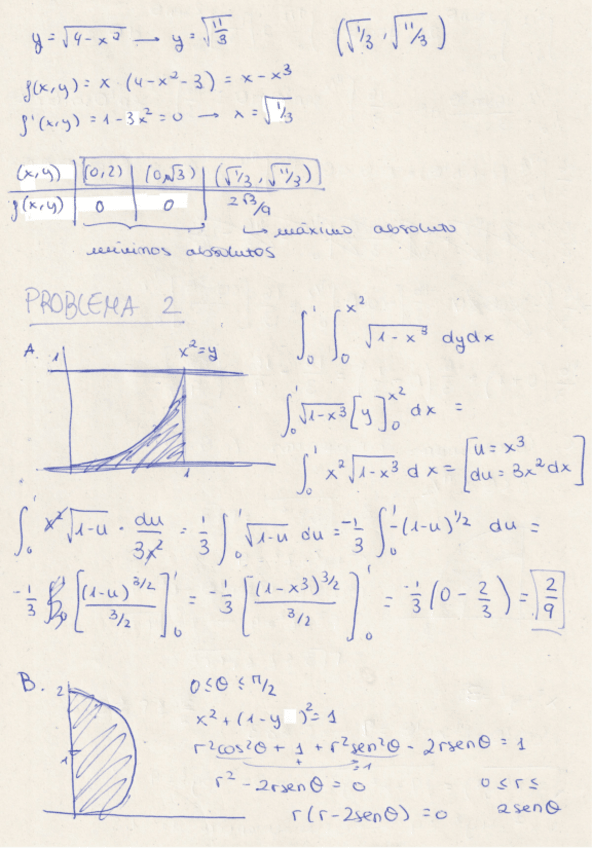 y = √(4-x²) → y = √(11/3) (√1/3, √11/3)
f(x,y) = x · (4-x²-3) = x - x³
f'(x,y) = 1-3x² = 0 → x = √1/3
(x,y) | (0,2) | (0,√3) | (√1/3, √11/3)
f(x,y) | 0 | 0 | 2√3/9
→ máximo absoluto
mínimos absolutos
PROBLEMA 2
A. 1 x²=y
1
∫₀¹ ∫₀^x² √(1-x³) dydx
∫₀¹ √(1-x³) [y]₀^x² dx =
∫₀¹ x² √(1-x³) dx = [u = x³
du = 3x²dx]
∫₀¹ x² √(1-u) · du/3x² = 1/3 ∫₀¹ √(1-u) du = -1/3 ∫₀¹ -(1-u)^1/2 du =
-1/3 [(1-u)^3/2 / 3/2]₀¹ = -1/3 [(1-x³)^3/2 / 3/2]₀¹ = -1/3 (0 - 2/3) = 2/9
B. 2
1
0 ≤ θ ≤ π/2
x² + (1-y )² = 1
r²cos²θ + 1 + r²sen²θ - 2rsenθ = 1
r² - 2rsenθ = 0 0 ≤ r ≤
r(r-2senθ) = 0 2senθ